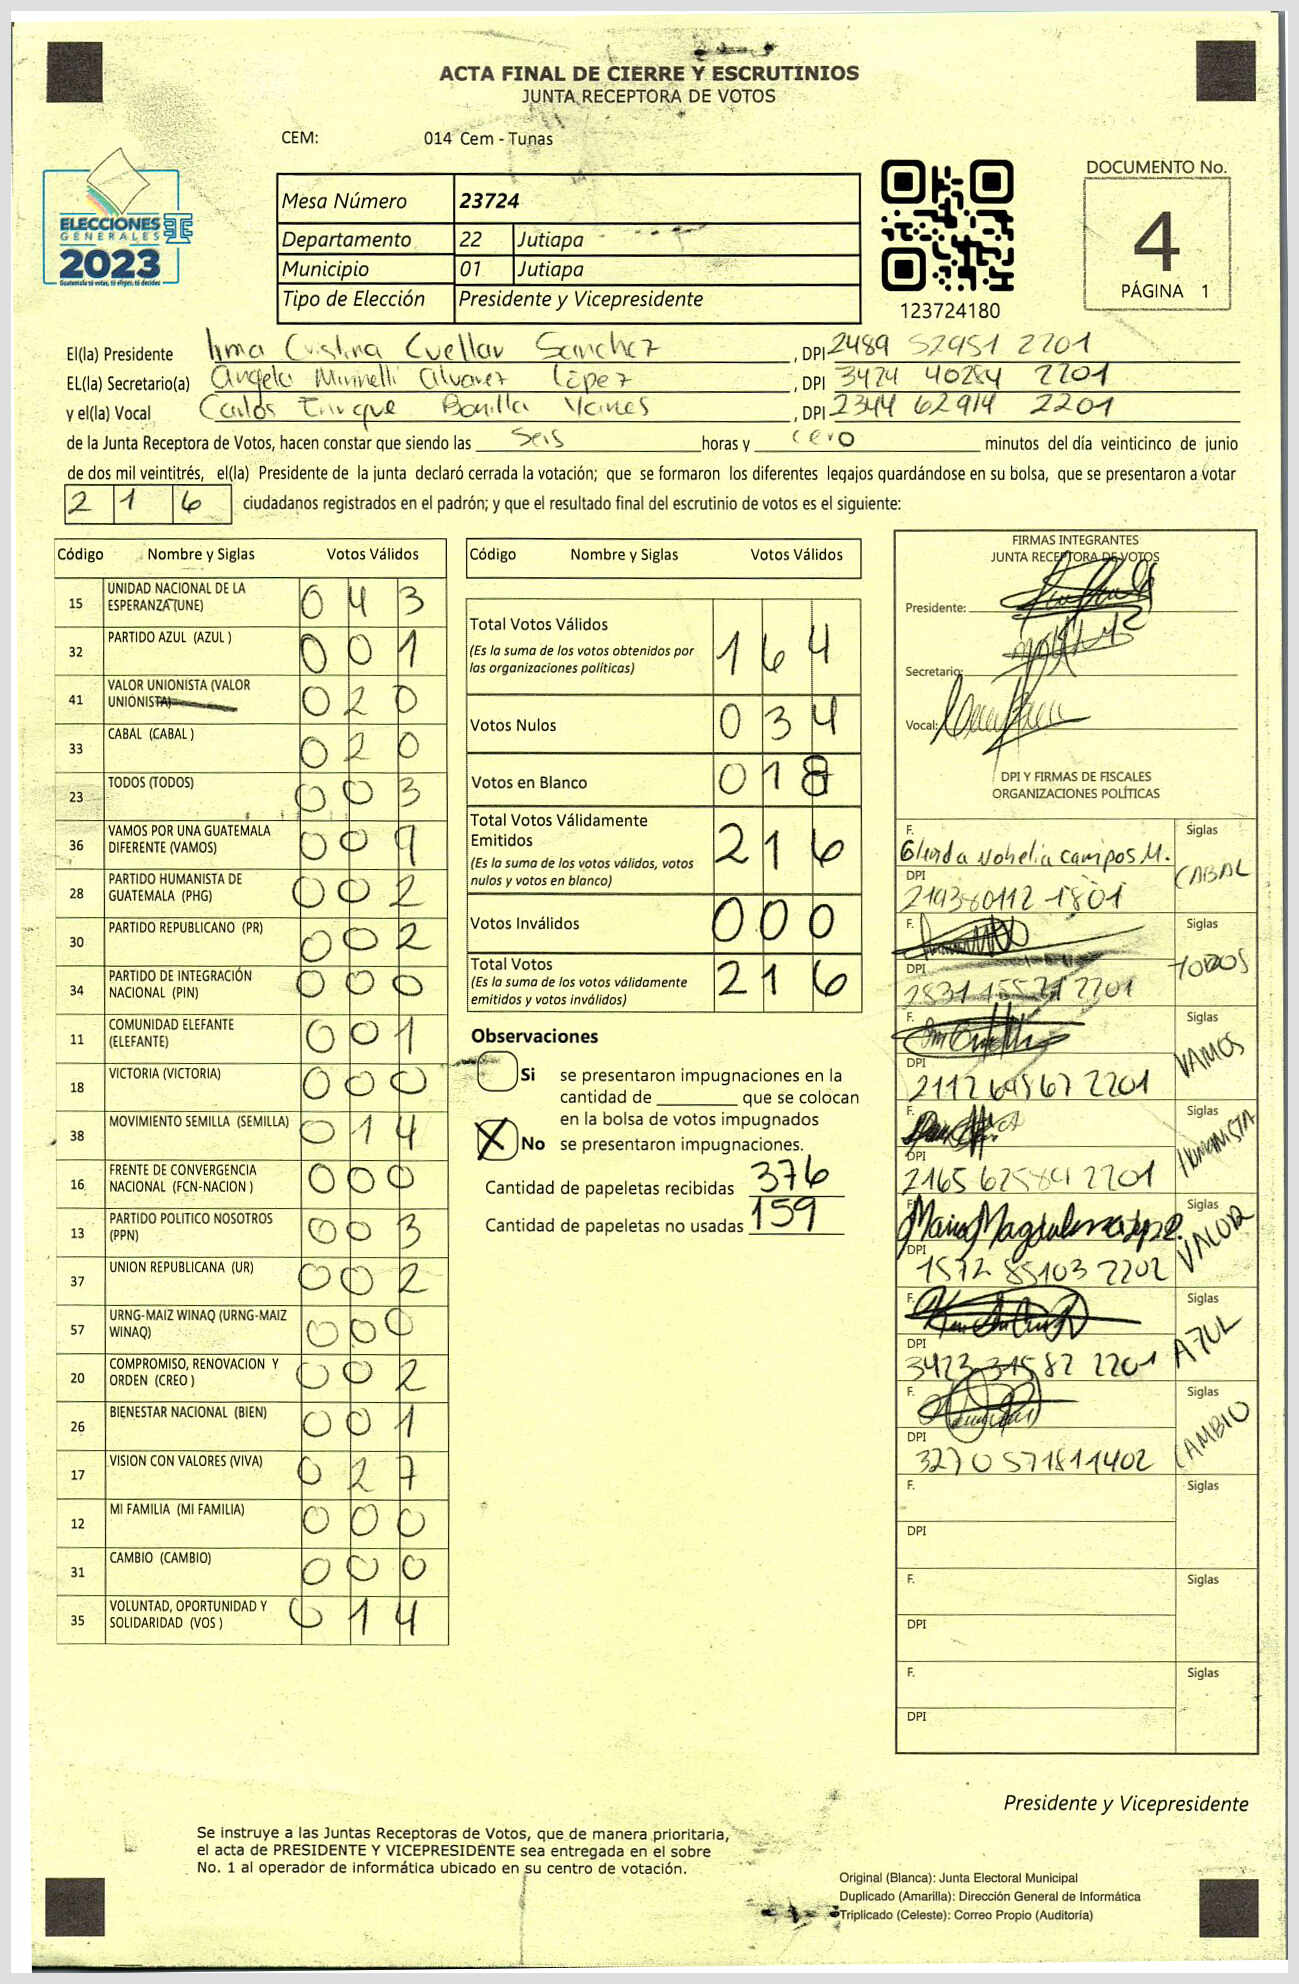 ACTA FINAL DE CIERRE Y ESCRUTINIOS
JUNTA RECEPTORA DE VOTOS
CEM: 014 Cem - Tunas
ELECCIONES
GENERALES
2023
Guatemala tú votas, tú eliges, tú decides
Mesa Número 23724
Departamento 22 Jutiapa
Municipio 01 Jutiapa
Tipo de Elección Presidente y Vicepresidente
123724180
DOCUMENTO No.
4
PÁGINA 1
El(la) Presidente Irma Cristina Cuellar Sanchez, DPI 2489 52951 2201
EL(la) Secretario(a) Angela Minnelli Alvarez López, DPI 3424 40284 2201
y el(la) Vocal Carlos Enrique Bonilla Yanes, DPI 2344 62914 2201
de la Junta Receptora de Votos, hacen constar que siendo las seis horas y cero minutos del día veinticinco de junio
de dos mil veintitrés, el(la) Presidente de la junta declaró cerrada la votación; que se formaron los diferentes legajos guardándose en su bolsa, que se presentaron a votar
2 1 6 ciudadanos registrados en el padrón; y que el resultado final del escrutinio de votos es el siguiente:
Código Nombre y Siglas Votos Válidos
15 UNIDAD NACIONAL DE LA ESPERANZA (UNE) 0 4 3
32 PARTIDO AZUL (AZUL ) 0 0 1
41 VALOR UNIONISTA (VALOR UNIONISTA) 0 2 0
33 CABAL (CABAL ) 0 2 0
23 TODOS (TODOS) 0 0 3
36 VAMOS POR UNA GUATEMALA DIFERENTE (VAMOS) 0 0 9
28 PARTIDO HUMANISTA DE GUATEMALA (PHG) 0 0 2
30 PARTIDO REPUBLICANO (PR) 0 0 2
34 PARTIDO DE INTEGRACIÓN NACIONAL (PIN) 0 0 0
11 COMUNIDAD ELEFANTE (ELEFANTE) 0 0 1
18 VICTORIA (VICTORIA) 0 0 0
38 MOVIMIENTO SEMILLA (SEMILLA) 0 1 4
16 FRENTE DE CONVERGENCIA NACIONAL (FCN-NACION ) 0 0 0
13 PARTIDO POLITICO NOSOTROS (PPN) 0 0 3
37 UNION REPUBLICANA (UR) 0 0 2
57 URNG-MAIZ WINAQ (URNG-MAIZ WINAQ) 0 0 0
20 COMPROMISO, RENOVACION Y ORDEN (CREO ) 0 0 2
26 BIENESTAR NACIONAL (BIEN) 0 0 1
17 VISION CON VALORES (VIVA) 0 2 7
12 MI FAMILIA (MI FAMILIA) 0 0 0
31 CAMBIO (CAMBIO) 0 0 0
35 VOLUNTAD, OPORTUNIDAD Y SOLIDARIDAD (VOS ) 0 1 4
Código Nombre y Siglas Votos Válidos
Total Votos Válidos 1 6 4
(Es la suma de los votos obtenidos por
las organizaciones políticas)
Votos Nulos 0 3 4
Votos en Blanco 0 1 8
Total Votos Válidamente
Emitidos 2 1 6
(Es la suma de los votos válidos, votos
nulos y votos en blanco)
Votos Inválidos 0 0 0
Total Votos 2 1 6
(Es la suma de los votos válidamente
emitidos y votos inválidos)
Observaciones
Si se presentaron impugnaciones en la
cantidad de ________ que se colocan
en la bolsa de votos impugnados
X No se presentaron impugnaciones.
Cantidad de papeletas recibidas 376
Cantidad de papeletas no usadas 159
FIRMAS INTEGRANTES
JUNTA RECEPTORA DE VOTOS
Presidente:
Secretario:
Vocal:
DPI Y FIRMAS DE FISCALES
ORGANIZACIONES POLÍTICAS
F. Siglas
Glenda Nohelia Campos M. CABAL
DPI
219380112 1801
F. Siglas
TODOS
DPI
2201
F. Siglas
VAMOS
DPI
2112 64967 2201
F. Siglas
HUMANISTA
DPI
2165 62584 2201
F. Siglas
Maria Magdalena VALOR
DPI
1572 85103 2202
F. Siglas
AZUL
DPI
3423 31582 2201
F. Siglas
CAMBIO
DPI
3270 571811402
F. Siglas
DPI
F. Siglas
DPI
F. Siglas
DPI
Presidente y Vicepresidente
Se instruye a las Juntas Receptoras de Votos, que de manera prioritaria,
el acta de PRESIDENTE Y VICEPRESIDENTE sea entregada en el sobre
No. 1 al operador de informática ubicado en su centro de votación.
Original (Blanca): Junta Electoral Municipal
Duplicado (Amarilla): Dirección General de Informática
Triplicado (Celeste): Correo Propio (Auditoría)